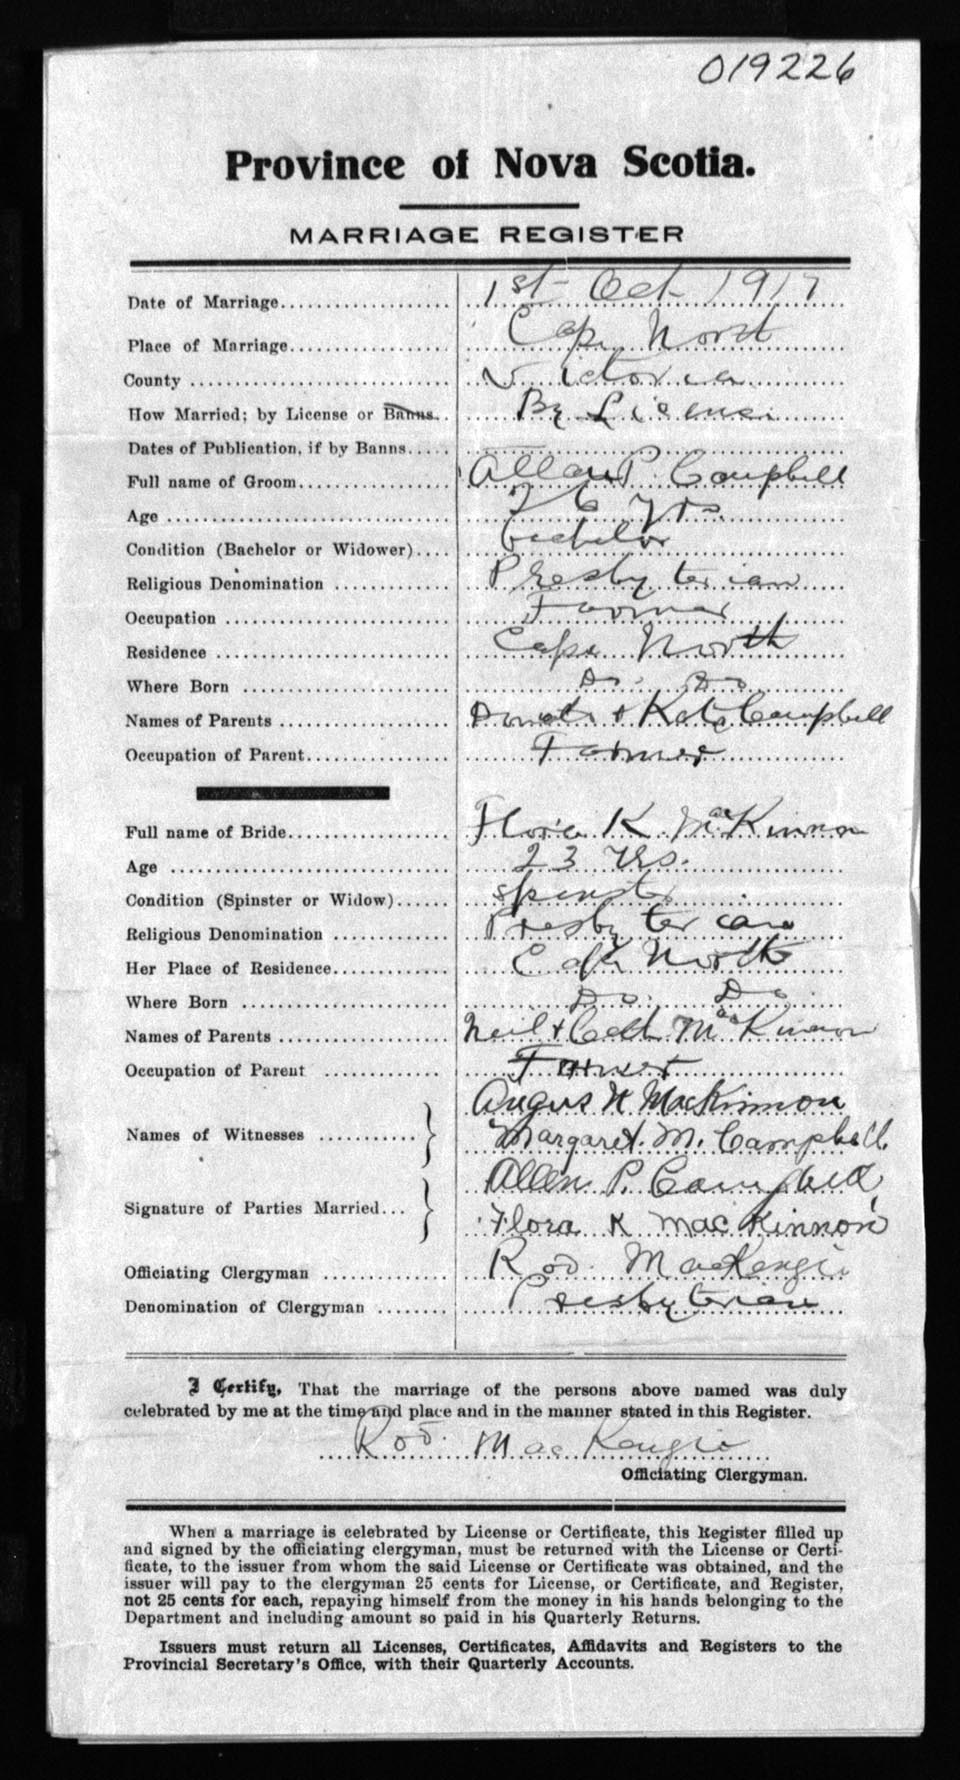 019226
Province of Nova Scotia.
MARRIAGE REGISTER
Date of Marriage 1st Oct 1917
Place of Marriage Cape North
County Victoria
How Married; by License or Banns By License
Dates of Publication, if by Banns
Full name of Groom Allan P. Campbell
Age 26 yrs.
Condition (Bachelor or Widower) bachelor
Religious Denomination Presbyterian
Occupation Farmer
Residence Cape North
Where Born Do. Do
Names of Parents & Kate Campbell
Occupation of Parent Farmer
Full name of Bride Flora K MacKinnon
Age 23 Yrs.
Condition (Spinster or Widow) spinster
Religious Denomination Presbyterian
Her Place of Residence Cape North
Where Born Do. Do
Names of Parents Neil & MacKinnon
Occupation of Parent Farmer
Names of Witnesses Angus N MacKinnon
Margaret. M. Campbell
Signature of Parties Married Allen P. Campbell
Flora K MacKinnon
Officiating Clergyman Rod. MacKenzie
Denomination of Clergyman Presbyterian
I Certify, That the marriage of the persons above named was duly
celebrated by me at the time and place and in the manner stated in this Register.
Rod. MacKenzie
Officiating Clergyman.
When a marriage is celebrated by License or Certificate, this Register filled up
and signed by the officiating clergyman, must be returned with the License or Certi-
ficate, to the issuer from whom the said License or Certificate was obtained, and the
issuer will pay to the clergyman 25 cents for License, or Certificate, and Register,
not 25 cents for each, repaying himself from the money in his hands belonging to the
Department and including amount so paid in his Quarterly Returns.
Issuers must return all Licenses, Certificates, Affidavits and Registers to the
Provincial Secretary's Office, with their Quarterly Accounts.